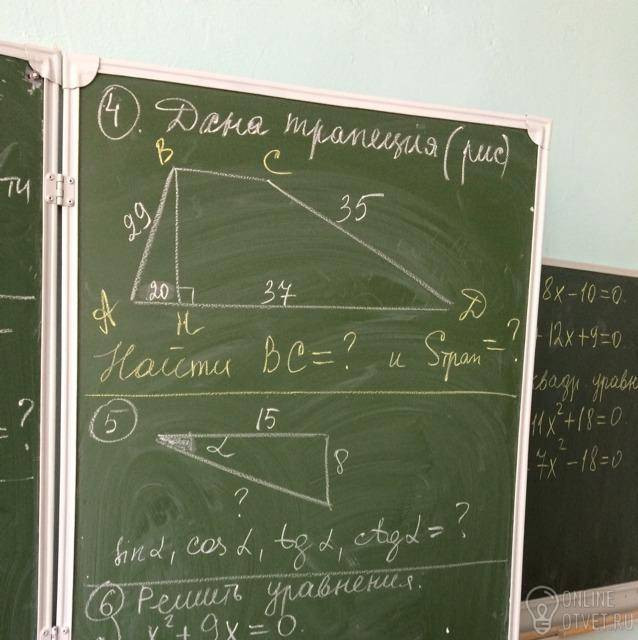 4. Дана трапеция (рис)
В
С
29
35
20
37
А
Н
Д
Найти ВС = ? и Sтрап = ?
5
15
α
8
?
sinα, cosα, tgα, ctgα = ?
6 Решить уравнения.
x² + 9x = 0
ти
= ?
8x - 10 = 0.
- 12x + 9 = 0
11x² + 18 = 0
7x² - 18 = 0
ONLINE
OTVET.RU